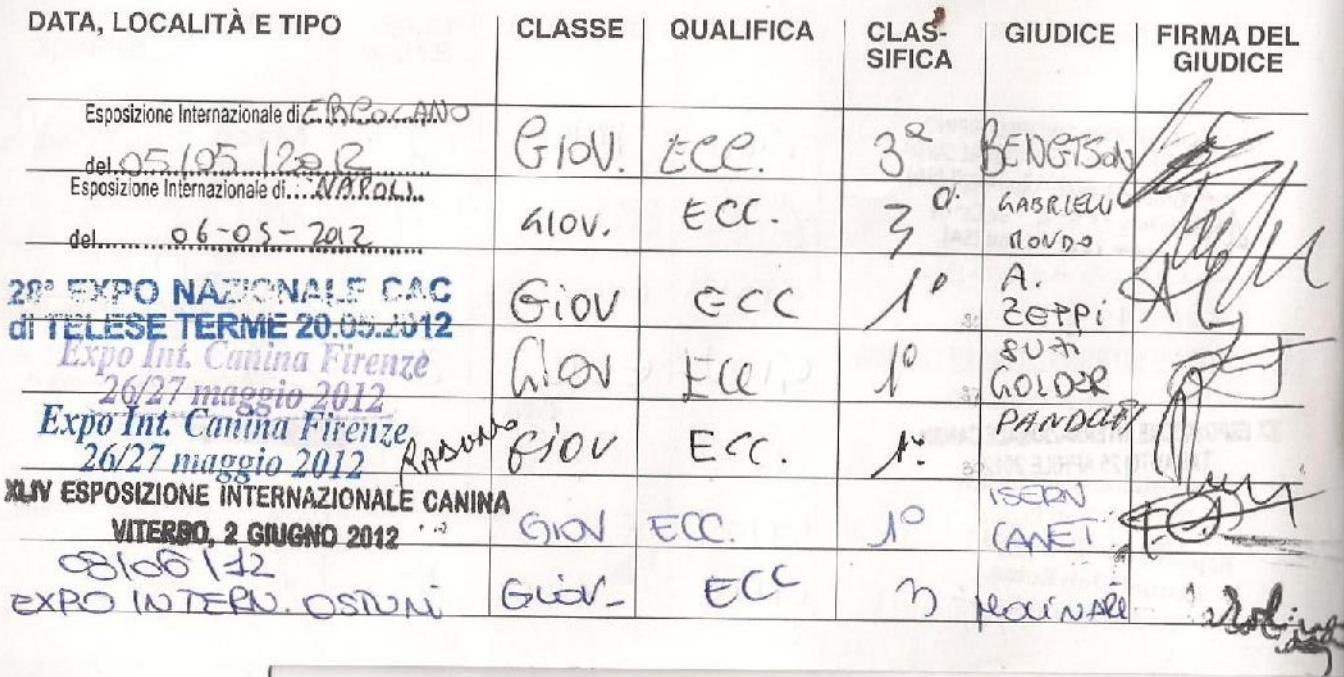 DATA, LOCALITÀ E TIPO CLASSE QUALIFICA CLAS-SIFICA GIUDICE FIRMA DEL GIUDICE
Esposizione Internazionale di ERCOLANO
del 05/05/2012 GIOV. ECC. 3° BENGTSON
Esposizione Internazionale di NAPOLI
del 06-05-2012 GIOV. ECC. 3° GABRIELU MONDO
28ª EXPO NAZIONALE CAC
di TELESE TERME 20.05.2012 GIOV ECC 1° A. ZEPPI
Expo Int. Canina Firenze
26/27 maggio 2012 GIOV ECC 1° GOLDER
Expo Int. Canina Firenze
26/27 maggio 2012 RADUNO GIOV ECC. 1°
XLIV ESPOSIZIONE INTERNAZIONALE CANINA
VITERBO, 2 GIUGNO 2012 GIOV ECC. 1° ISERN CANET
08/06/12
EXPO INTERN. OSTUNI GIOV- ECC 3 MOLINARI